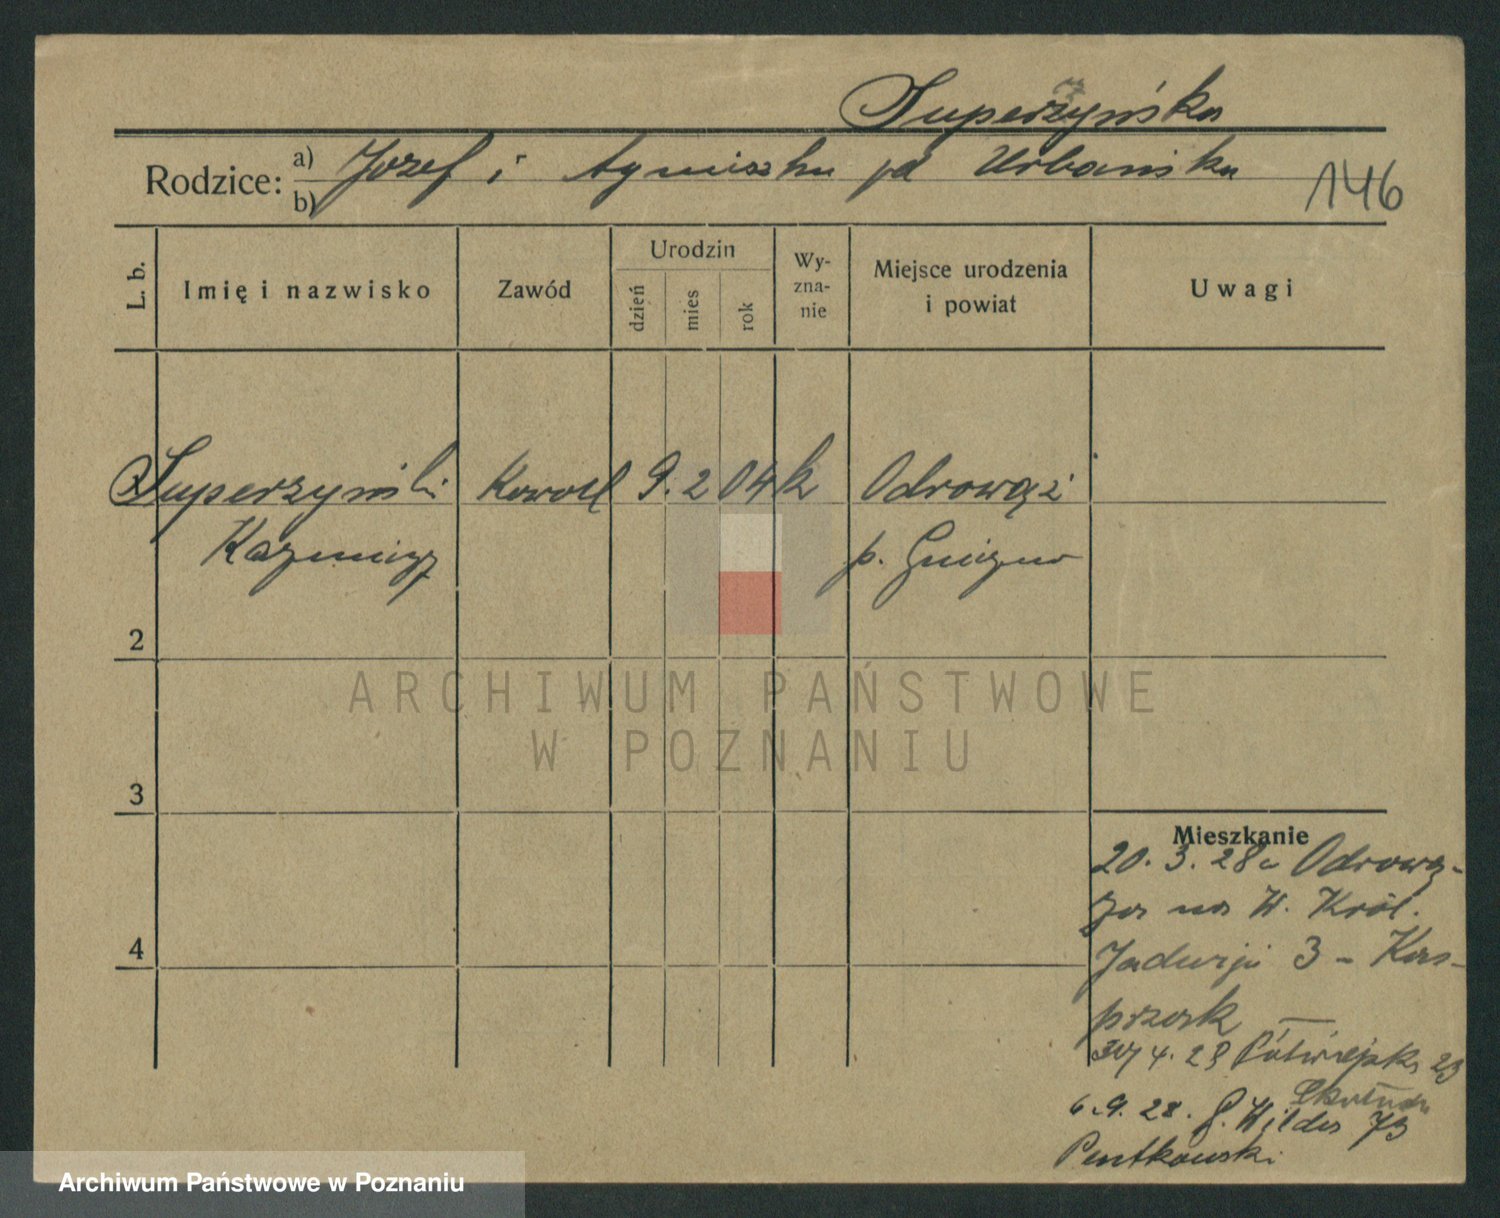 Superzyńska
Rodzice: a) Józef i Agnieszka pd Urbańska
b)
146
L. b.
Imię i nazwisko
Zawód
Urodzin
dzień
mies
rok
Wy-
zna-
nie
Miejsce urodzenia
i powiat
Uwagi
Superzyński Kowal 9. 2 04 k Odrowąż
Kazimierz p. Gniezno
2
3
4
Mieszkanie
20. 3. 28 z Odrową-
ża na W. Król.
Jadwigi 3 - Kas-
przak
4. 28 Półwiejska 23
6. 9. 28. G. Wilda 73
Pentkowski
ARCHIWUM PAŃSTWOWE
W POZNANIU
Archiwum Państwowe w Poznaniu